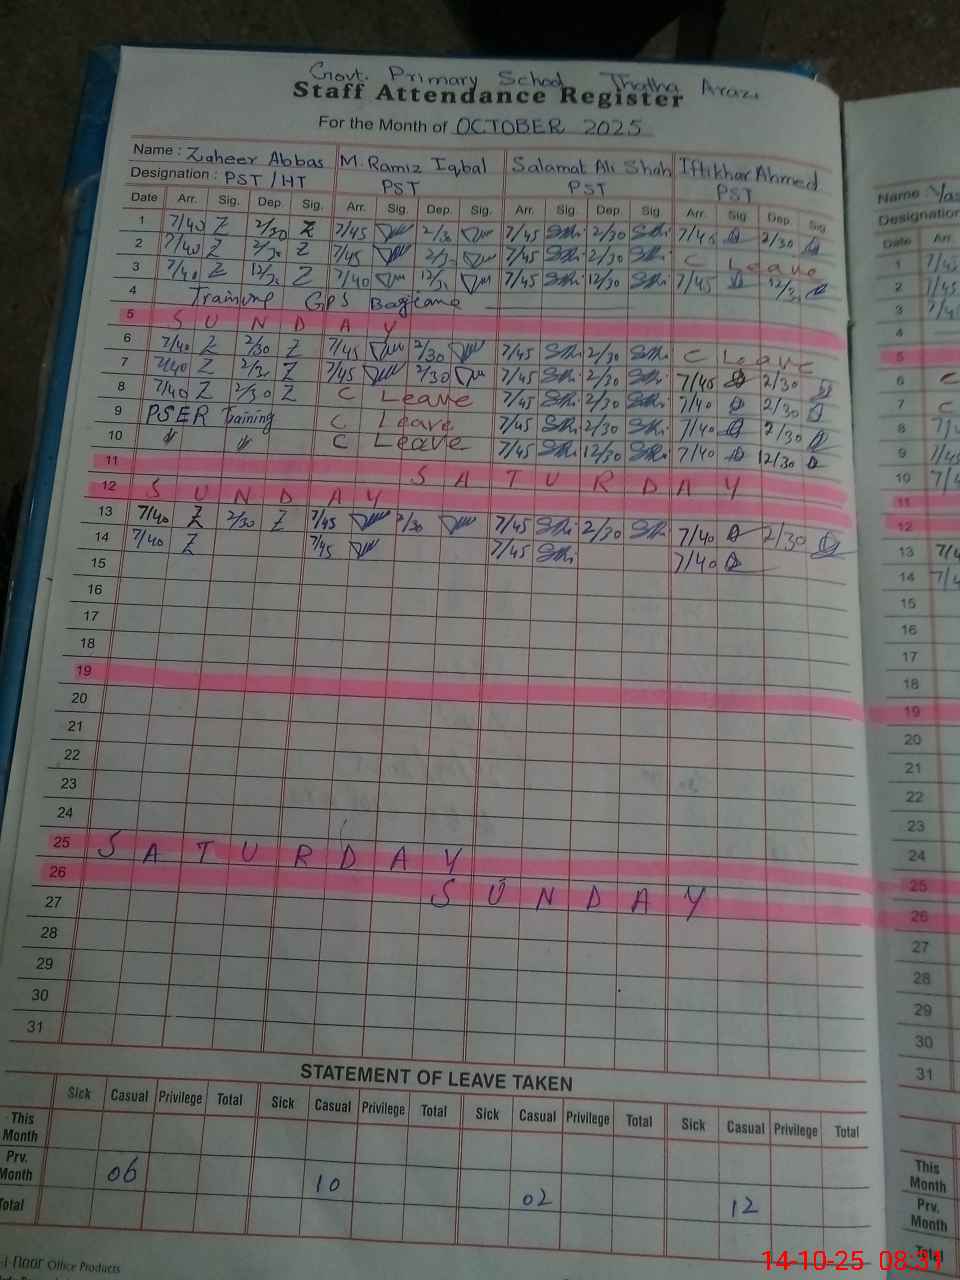 Govt. Primary School Thatha Arazi
Staff Attendance Register
For the Month of OCTOBER 2025
Name : Zaheer Abbas M. Ramiz Iqbal Salamat Ali Shah Iftikhar Ahmed
Designation : PST / HT PST PST PST
Date Arr. Sig. Dep. Sig. Arr. Sig. Dep. Sig. Arr. Sig. Dep. Sig. Arr. Sig Dep. Sig
1 7/40 Z 2/30 Z 7/45 2/30 7/45 2/30 7/40 2/30
2 7/40 Z 2/30 Z 7/45 2/30 7/45 2/30 C Leave
3 7/40 Z 12/30 Z 7/40 12/30 7/45 12/30 7/45 12/30
4 Training GPS
5 S U N D A Y
6 7/40 Z 2/30 Z 7/45 2/30 7/45 2/30 C Leave
7 7/40 Z 2/30 Z 7/45 2/30 7/45 2/30 7/40 2/30
8 7/40 Z 2/30 Z C Leave 7/45 2/30 7/40 2/30
9 PSER Training C Leave 7/45 2/30 7/40 2/30
10 C Leave 7/45 12/30 7/40 12/30
11 S A T U R D A Y
12 S U N D A Y
13 7/40 Z 2/30 Z 7/45 2/30 7/45 2/30 7/40 2/30
14 7/40 Z 7/45 7/45 7/40
15
16
17
18
19
20
21
22
23
24
25 S A T U R D A Y
26 S U N D A Y
27
28
29
30
31
STATEMENT OF LEAVE TAKEN
Sick Casual Privilege Total Sick Casual Privilege Total Sick Casual Privilege Total Sick Casual Privilege Total
This Month
Prv. Month 06 10 02 12
Total
Office Products
Name :
Designation
Date Arr.
1 7/45
2 7/45
3
4
5
6 C
7 C
8
9 7/45
10
11
12
13
14
15
16
17
18
19
20
21
22
23
24
25
26
27
28
29
30
31
This Month
Prv. Month
Total
14-10-25 08:31